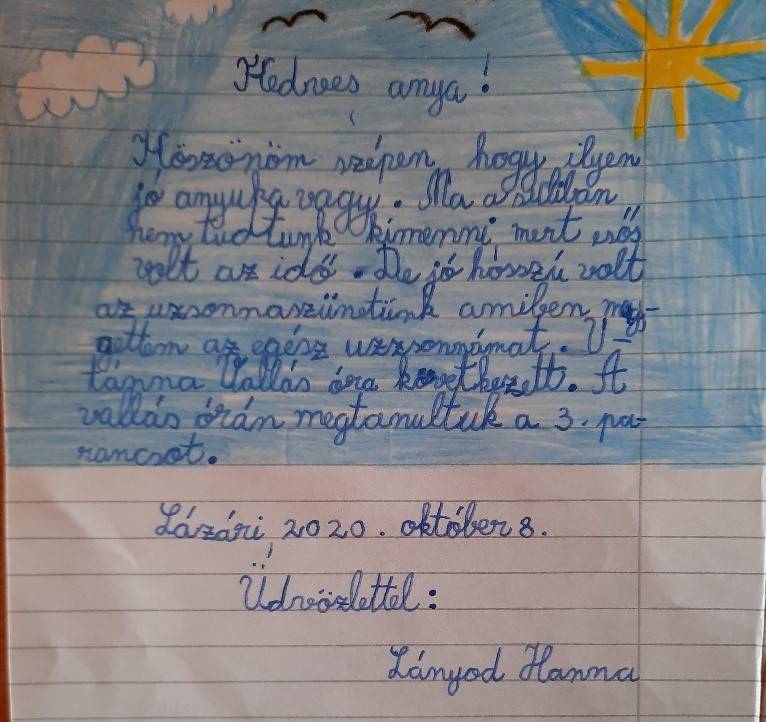 Kedves anya!
Köszönöm szépen, hogy ilyen
jó anyuka vagy. Ma a suliban
nem tudtunk kimenni, mert esős
volt az idő. De jó hosszú volt
az uzsonnaszünetünk amiben meg-
gettem az egész uzzsonnámat. U-
tánna Vallás óra következett. A
vallás órán megtanultuk a 3. pa-
rancsot.
Lázári, 2020. október 8.
Üdvözlettel:
Lányod Hanna